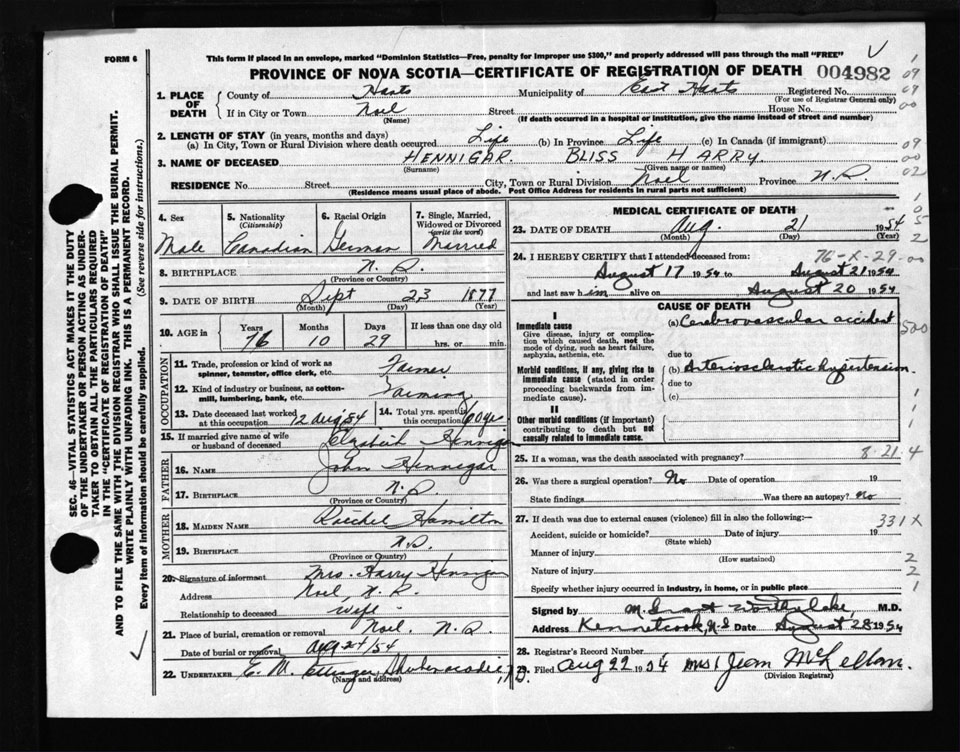 FORM 6
This form if placed in an envelope, marked "Dominion Statistics—Free, penalty for improper use $300," and properly addressed will pass through the mail "FREE"
PROVINCE OF NOVA SCOTIA—CERTIFICATE OF REGISTRATION OF DEATH 004982
1. PLACE OF DEATH
County of Hants Municipality of East Hants Registered No.
(For use of Registrar General only)
If in City or Town Noel Street House No.
(Name) (If death occurred in a hospital or institution, give the name instead of street and number)
2. LENGTH OF STAY (in years, months and days)
(a) In City, Town or Rural Division where death occurred Life (b) In Province Life (c) In Canada (if immigrant)
3. NAME OF DECEASED HENNIGAR BLISS HARRY
(Surname) (Given name or names)
RESIDENCE No. Street City, Town or Rural Division Noel Province N.S.
(Residence means usual place of abode. Post Office Address for residents in rural parts not sufficient)
4. Sex Male
5. Nationality (Citizenship) Canadian
6. Racial Origin German
7. Single, Married, Widowed or Divorced (write the word) Married
8. BIRTHPLACE N.S.
(Province or Country)
9. DATE OF BIRTH Sept 23 1877
(Month) (Day) (Year)
10. AGE in Years Months Days If less than one day old
76 10 29 hrs. or min.
OCCUPATION
11. Trade, profession or kind of work as spinner, teamster, office clerk, etc. Farmer
12. Kind of industry or business, as cotton-mill, lumbering, bank, etc. Farming
13. Date deceased last worked at this occupation 12 Aug 54
14. Total yrs. spent in this occupation 60 yrs.
15. If married give name of wife or husband of deceased Elizabeth Hennigar
FATHER
16. NAME John Hennigar
17. BIRTHPLACE N.S.
(Province or Country)
MOTHER
18. MAIDEN NAME Hamilton
19. BIRTHPLACE N.S.
(Province or Country)
20. Signature of informant Mrs. Harry Hennigar
Address Noel, N.S.
Relationship to deceased wife
21. Place of burial, cremation or removal Noel. N.S.
Date of burial or removal Aug 24/54
22. UNDERTAKER E. M. Ettinger, Shubenacadie, N.S.
(Name and address)
MEDICAL CERTIFICATE OF DEATH
23. DATE OF DEATH Aug. 21 1954
(Month) (Day) (Year)
76-X-29
24. I HEREBY CERTIFY that I attended deceased from:
August 17 1954 to August 21 1954
and last saw him alive on August 20 1954
CAUSE OF DEATH
I
Immediate cause
Give disease, injury or complication which caused death, not the mode of dying, such as heart failure, asphyxia, asthenia, etc.
(a) Cerebrovascular accident
due to
Morbid conditions, if any, giving rise to immediate cause (stated in order proceeding backwards from immediate cause).
(b) Arteriosclerotic hypertension
due to
(c)
II
Other morbid conditions (if important) contributing to death but not causally related to immediate cause.
25. If a woman, was the death associated with pregnancy? 8-21-4
26. Was there a surgical operation? No Date of operation 19
State findings Was there an autopsy? No
27. If death was due to external causes (violence) fill in also the following:— 331X
Accident, suicide or homicide? Date of injury 19
(State which)
Manner of injury
(How sustained)
Nature of injury
Specify whether injury occurred in industry, in home, or in public place
Signed by M. Grant Worthylake, M.D.
Address Kennetcook, N.S Date August 28 1954
28. Registrar's Record Number
29. Filed Aug 22 1954 Mrs. Jean McLellan.
(Division Registrar)
SEC. 46—VITAL STATISTICS ACT MAKES IT THE DUTY
OF THE UNDERTAKER OR PERSON ACTING AS UNDER-
TAKER TO OBTAIN ALL THE PARTICULARS REQUIRED
IN THE "CERTIFICATE OF REGISTRATION OF DEATH"
AND TO FILE THE SAME WITH THE DIVISION REGISTRAR WHO SHALL ISSUE THE BURIAL PERMIT.
WRITE PLAINLY WITH UNFADING INK. THIS IS A PERMANENT RECORD.
Every item of information should be carefully supplied. (See reverse side for instructions.)